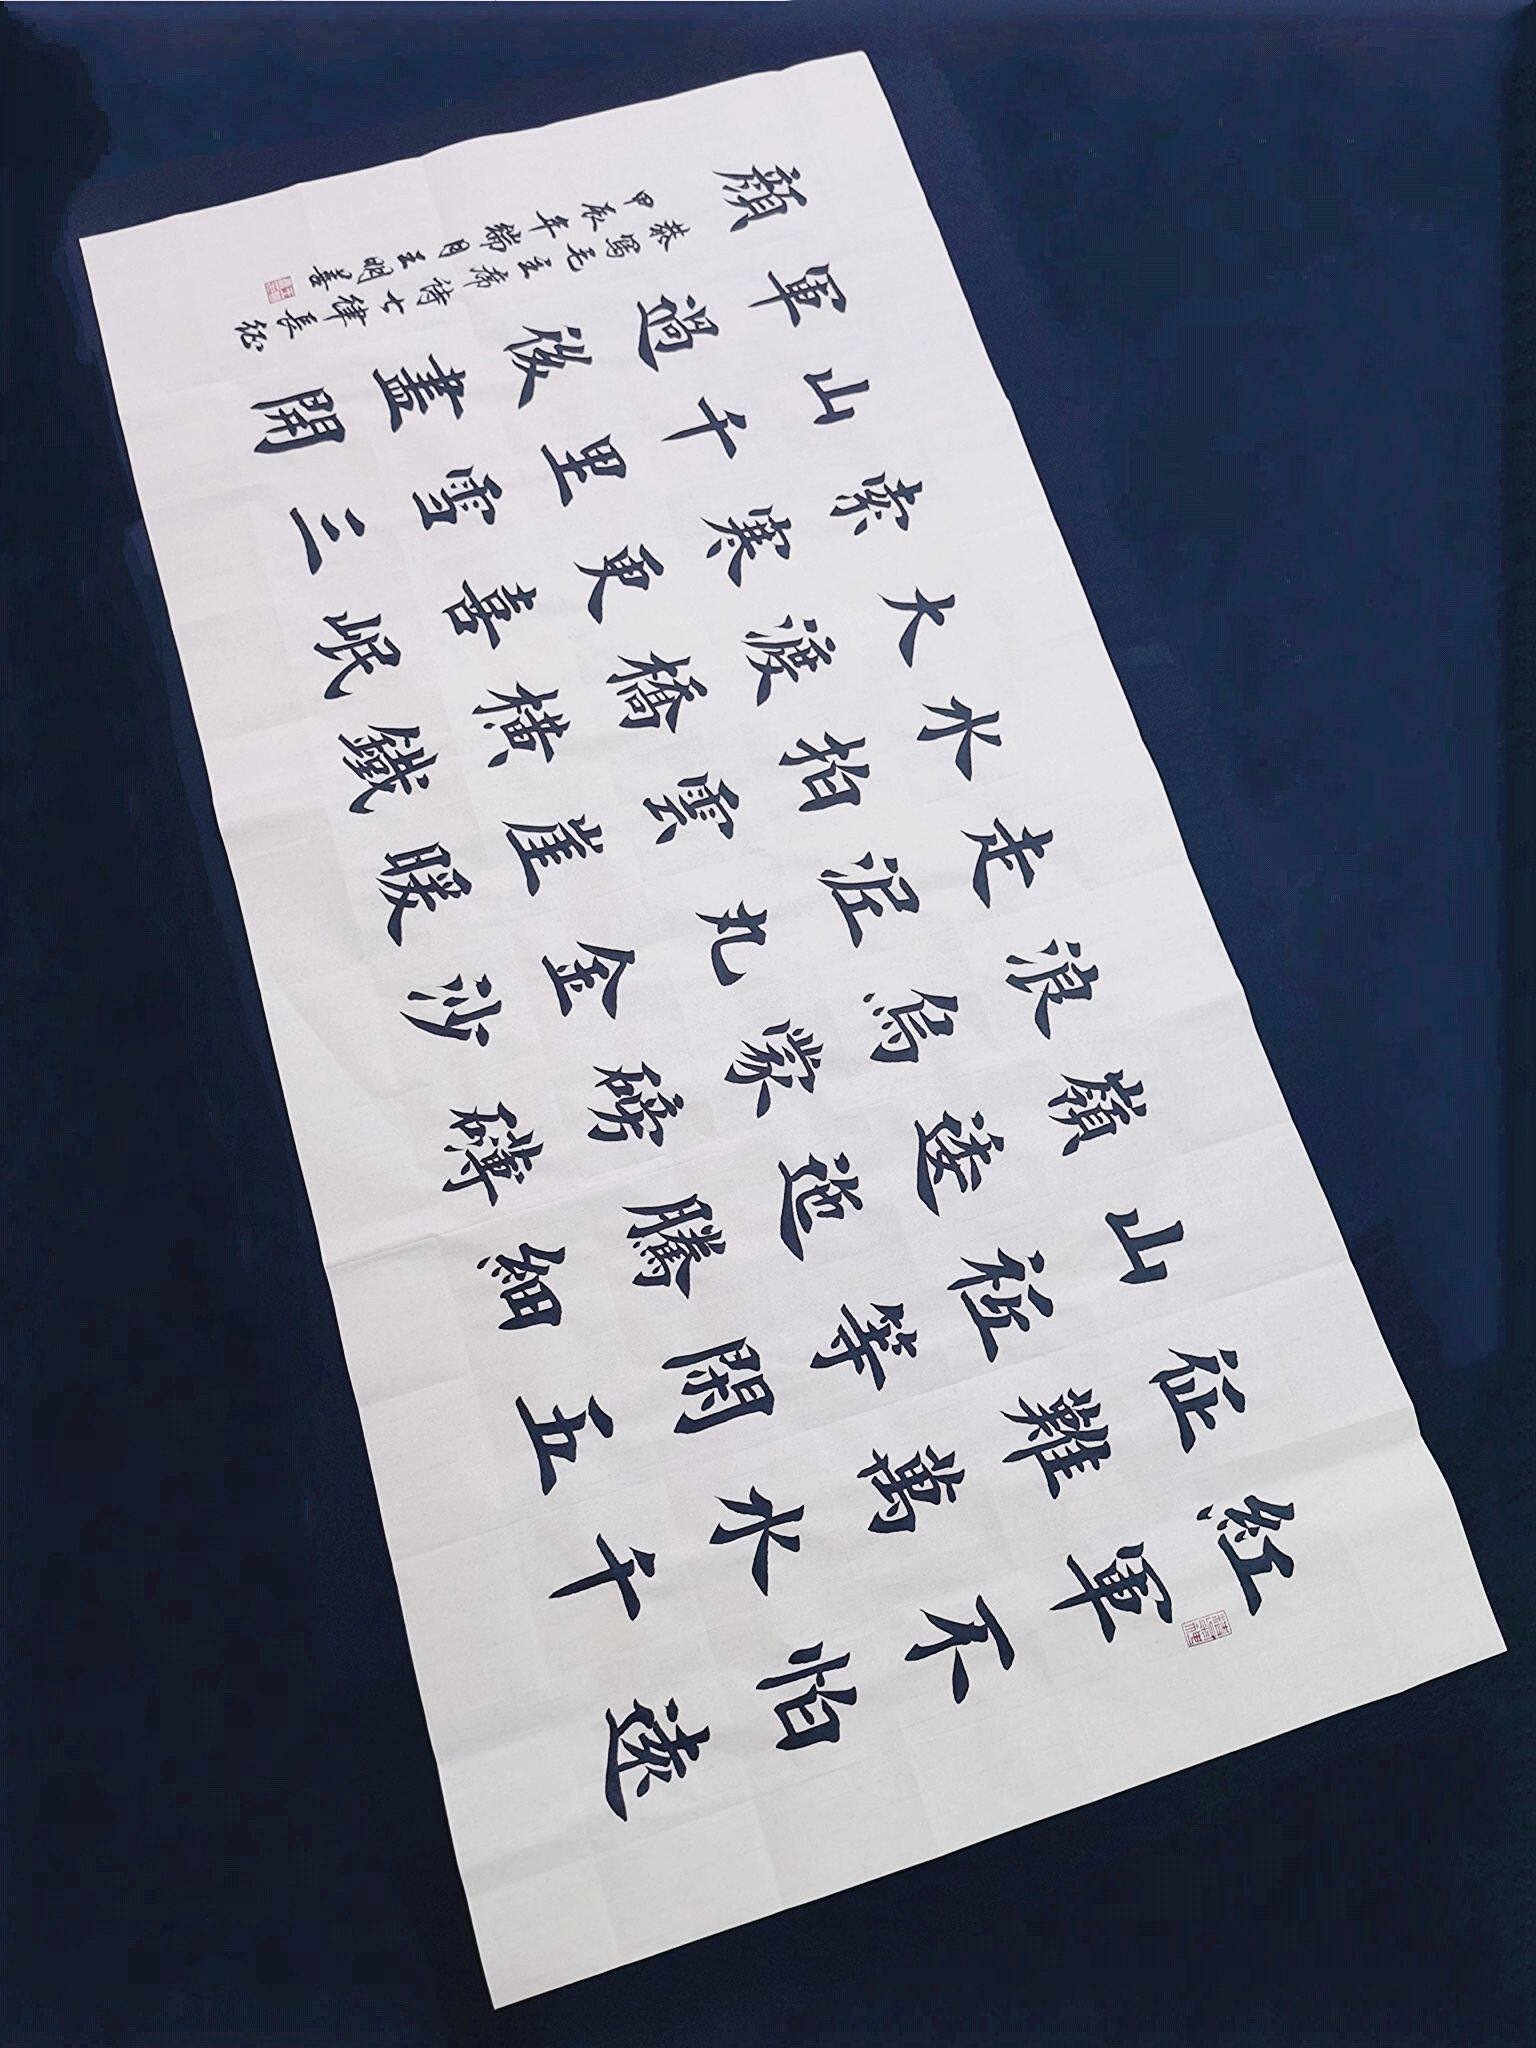 紅軍不怕遠
征難萬水千
山祇等閒五
嶺逶迤騰細
浪烏蒙磅礴
走泥丸金沙
水拍雲崖暖
大渡橋橫鐵
索寒更喜岷
山千里雪三
軍過後盡開
顏
恭寫毛主席詩七律長征
甲辰年端月王明善